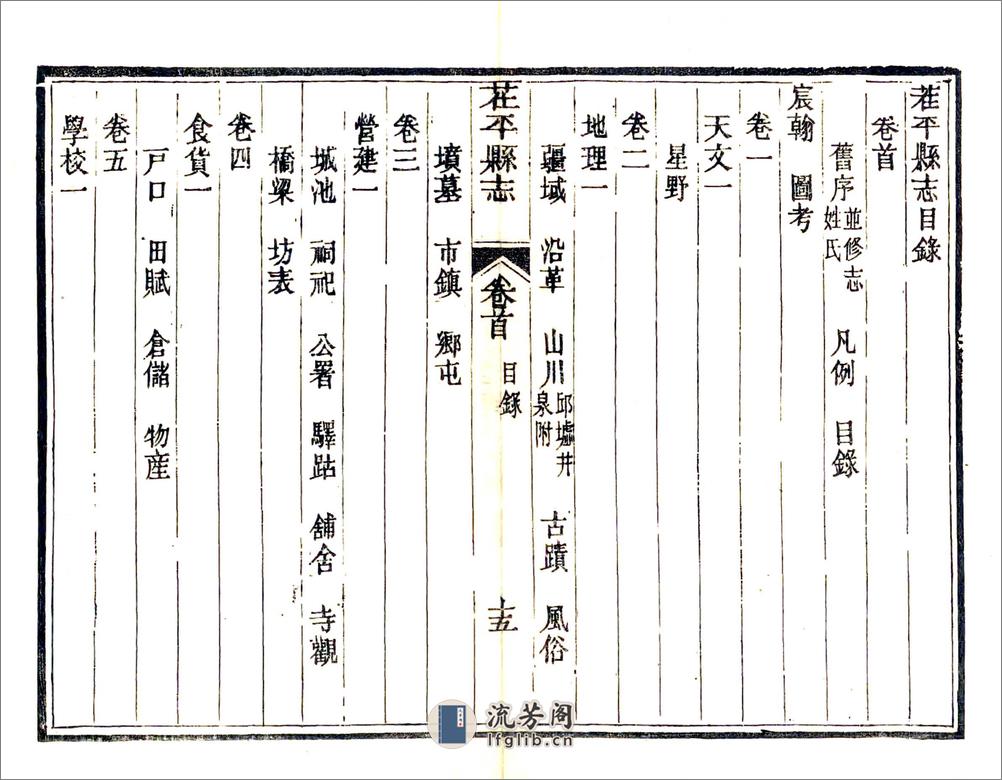 茌平縣志目錄
卷首
舊序 並修志姓氏 凡例 目錄
宸翰 圖考
卷一
天文一
星野
卷二
地理一
疆域 沿革 山川 邱墟井泉附 古蹟 風俗
茌平縣志 卷首 目錄 十五
墳墓 市鎮 鄉屯
卷三
營建一
城池 祠祀 公署 驕跕 舖舍 寺觀
橋梁 坊表
卷四
食貨一
戸口 田賦 倉儲 物産
卷五
學校一
流芳阁
lfglib.cn